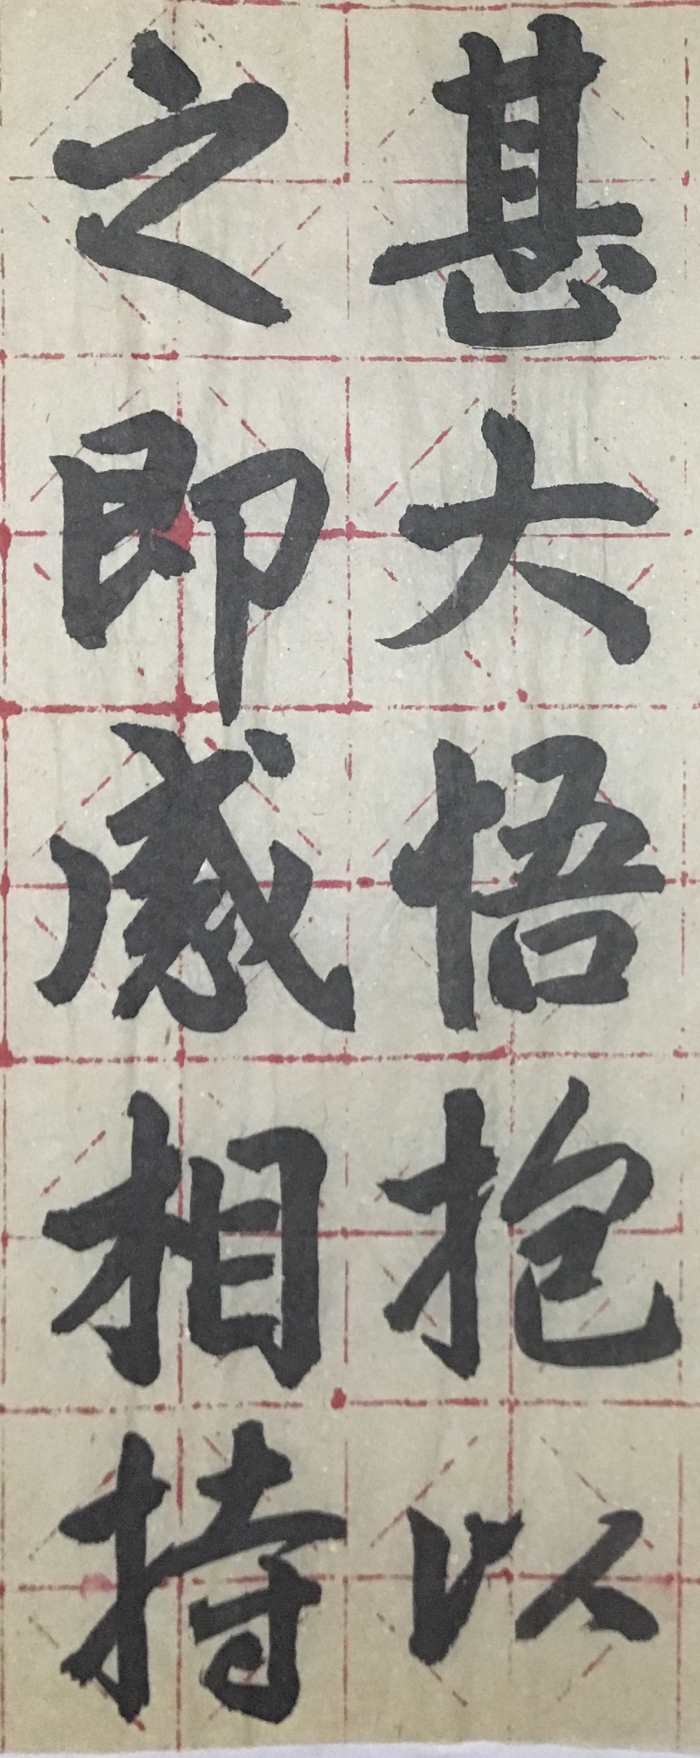 甚大悟抱以
之即感相持